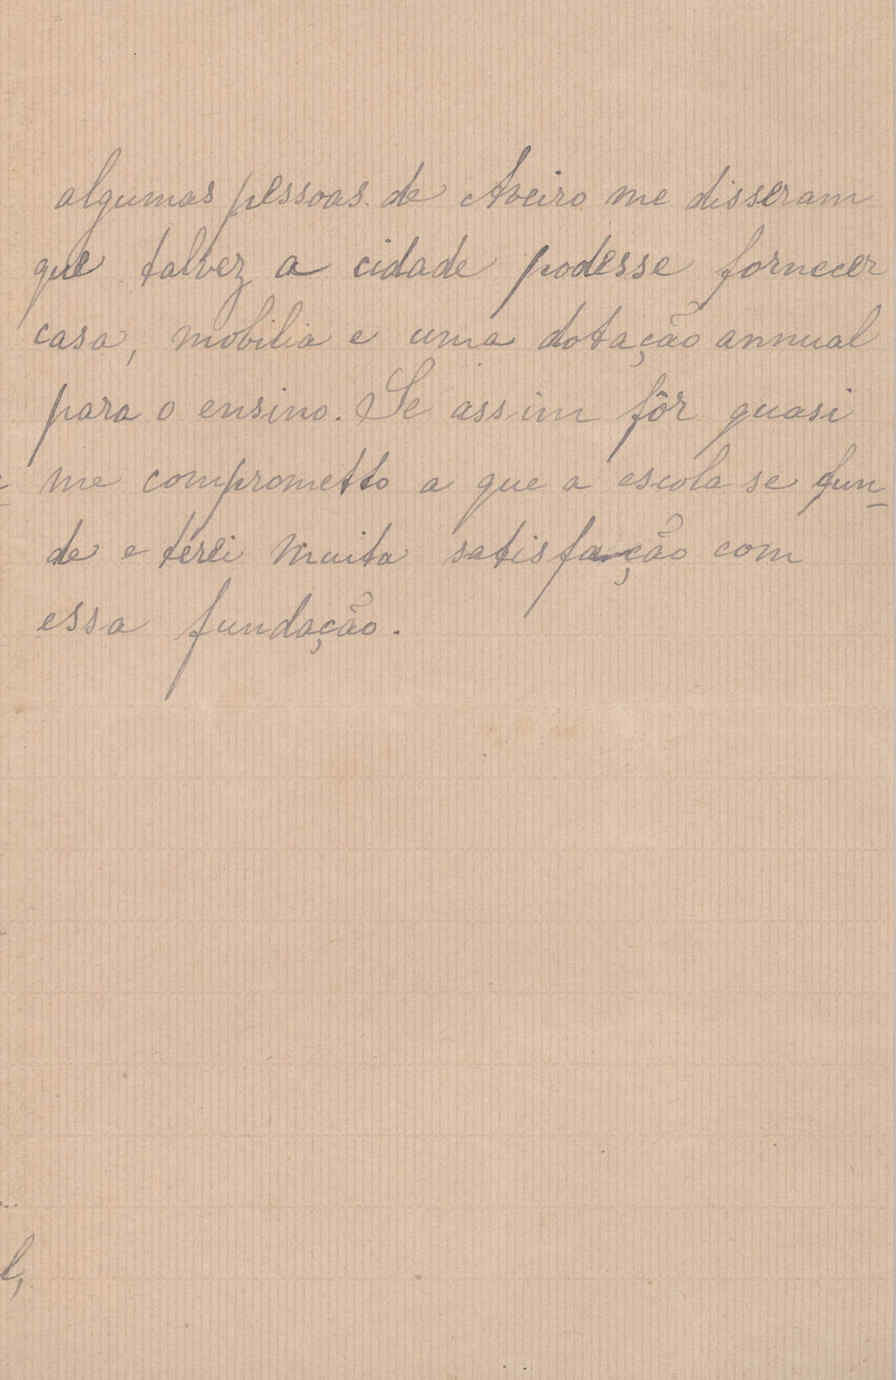 algumas pessoas de Aveiro me disseram
que talvez a cidade podesse fornecer
casa, mobilia e uma dotação annual
para o ensino. Se assim fôr quasi
me comprometto a que a escola se fun-
de e terei muita satisfação com
essa fundação.